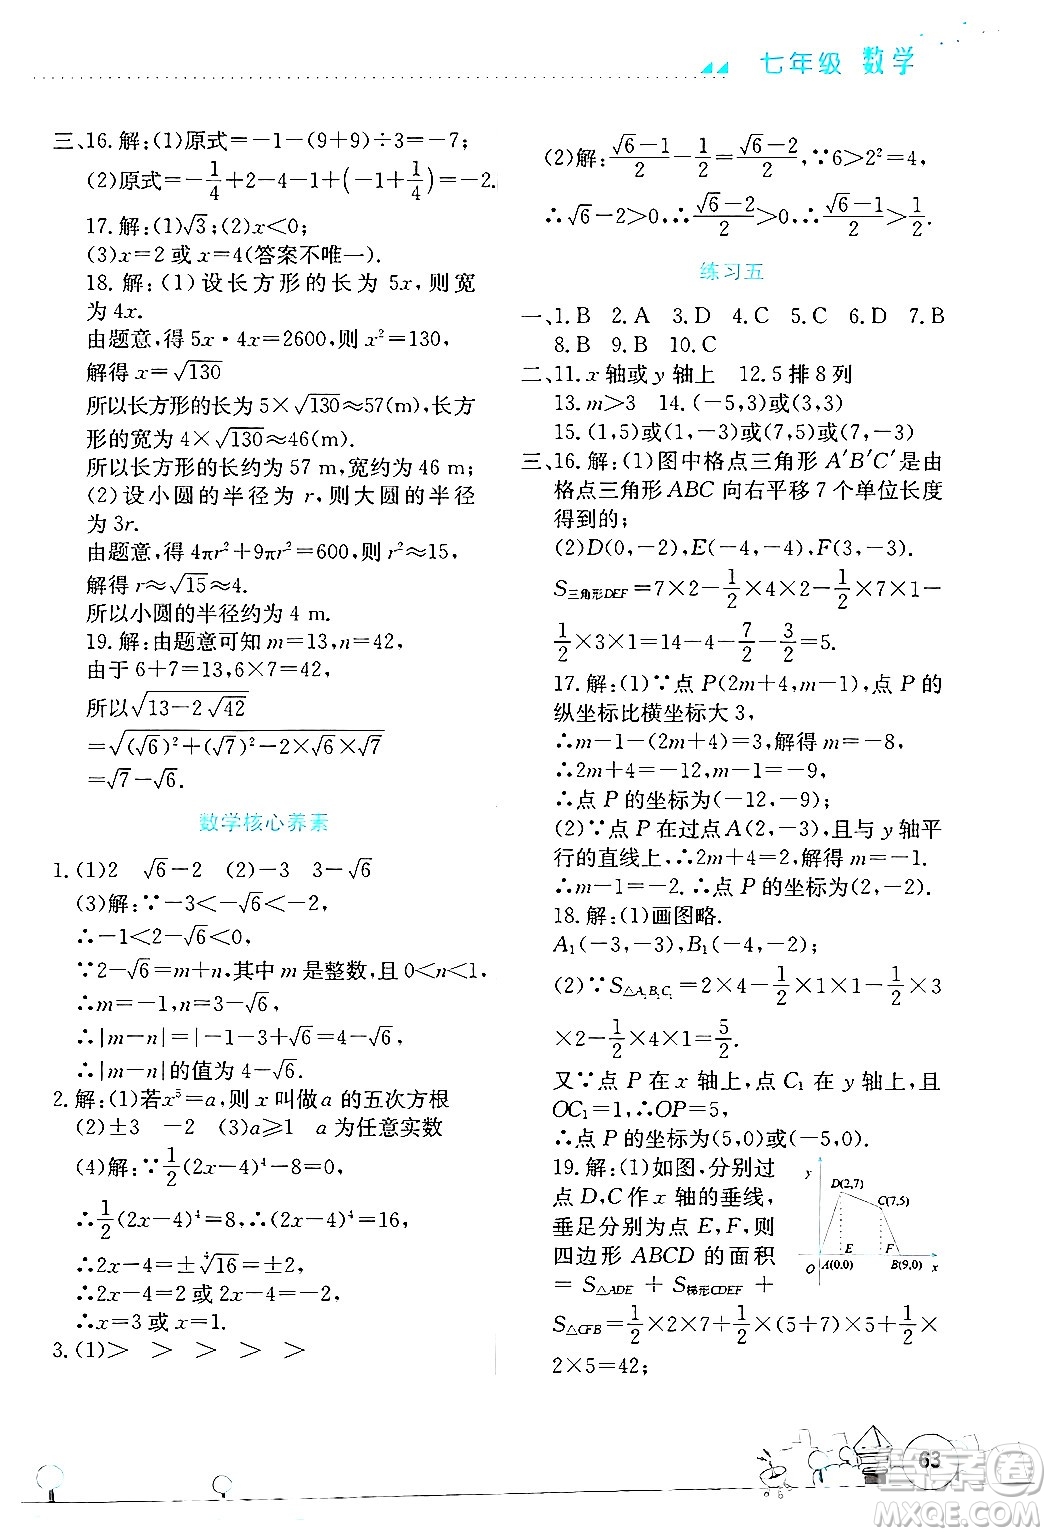 七年级 数学
三、16.解:(1)原式=-1-(9+9)÷3=-7;
(2)原式=-1/4+2-4-1+(-1+1/4)=-2.
17.解:(1)√3;(2)x<0;
(3)x=2 或 x=4(答案不唯一).
18.解:(1)设长方形的长为 5x,则宽
为 4x.
由题意,得 5x·4x=2600,则 x²=130,
解得 x=√130
所以长方形的长为 5×√130≈57(m),长方
形的宽为 4×√130≈46(m).
所以长方形的长约为 57 m,宽约为 46 m.
(2)设小圆的半径为 r,则大圆的半径
为 3r.
由题意,得 4πr²+9πr²=600,则 r²≈15,
解得 r≈√15≈4.
所以小圆的半径约为 4 m.
19.解:由题意可知 m=13,n=42,
由于 6+7=13,6×7=42,
所以√(13-2√42)
=√((√6)²+(√7)²-2×√6×√7)
=√7-√6.
数学核心养素
1.(1)2 √6-2 (2)-3 3-√6
(3)解:∵-3<-√6<-2,
∴-1<2-√6<0,
∵2-√6=m+n,其中 m 是整数,且 0<n<1,
∴m=-1,n=3-√6,
∴|m-n|=|-1-3+√6|=4-√6,
∴|m-n|的值为 4-√6.
2.解:(1)若x⁵=a,则 x 叫做 a 的五次方根
(2)±3 -2 (3)a≥1 a 为任意实数
(4)解:∵1/2(2x-4)⁴-8=0,
∴1/2(2x-4)⁴=8,∴(2x-4)⁴=16,
∴2x-4=±⁴√16=±2,
∴2x-4=2 或 2x-4=-2,
∴x=3 或 x=1.
3.(1)> > > > >
(2)解:(√6-1)/2-1/2=(√6-2)/2,∵6>2²=4,
∴√6-2>0,∴(√6-2)/2>0,∴(√6-1)/2>1/2.
练习五
一、1.B 2.A 3.D 4.D 5.C 6.D 7.B
8.B 9.B 10.C
二、11.x 轴或 y 轴上 12.5 排 8 列
13.m>3 14.(-5,3)或(3,3)
15.(1,5)或(1,-3)或(7,5)或(7,-3)
三、16.解:(1)图中格点三角形 A′B′C′是由
格点三角形 ABC 向右平移 7 个单位长度
得到的;
(2)D(0,-2),E(-4,-4),F(3,-3).
S三角形DEF=7×2-1/2×4×2-1/2×7×1-
1/2×3×1=14-4-7/2-3/2=5.
17.解:(1)∵点 P(2m+4,m-1),点 P 的
纵坐标比横坐标大 3,
∴m-1-(2m+4)=3,解得 m=-8,
∴2m+4=-12,m-1=-9,
∴点 P 的坐标为(-12,-9);
(2)∵点 P 在过点 A(2,-3),且与 y 轴平
行的直线上,∴2m+4=2,解得 m=-1.
∴m-1=-2.∴点 P 的坐标为(2,-2).
18.解:(1)画图略.
A₁(-3,-3),B₁(-4,-2);
(2)∵S△A₁B₁C₁=2×4-1/2×1×1-1/2×3
×2-1/2×4×1=5/2.
又∵点 P 在 x 轴上,点 C₁ 在 y 轴上,
OC₁=1,∴OP=5,
∴点 P 的坐标为(5,0)或(-5,0).
19.解:(1)如图,分别过
点 D,C 作 x 轴的垂线,
垂足分别为点 E,F,则
四边形 ABCD 的面积
=S△ADE+S梯形CDEF+
S△CFB=1/2×2×7+1/2×(5+7)×5+1/2×
2×5=42;
y
D(2,7)
C(7,5)
E F
O A(0,0) B(9,0) x
63
答案圈
MXQE.COM